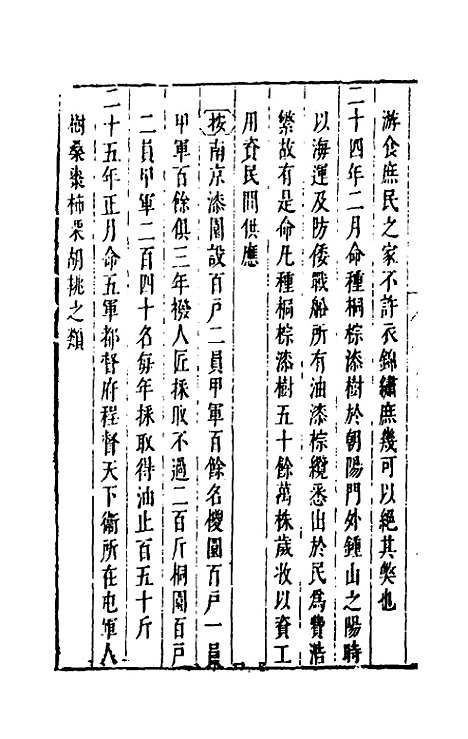 游食庶民之家不許衣錦繡庶幾可以絕其獘也
二十四年二月命種桐棕漆樹於朝陽門外鍾山之陽時
以海運及防倭戰船所有油漆棕纜悉出於民為費浩
繁故有是命凡種桐棕漆樹五十餘萬株歲收以資工
用省民間供應
按南京漆園設百戶二員甲軍百餘名椶園百戶一員
甲軍百餘俱三年撥人匠採取不過二百斤桐園百戶
二員甲軍二百四十名每年採取得油止百五十斤
二十五年正月命五軍都督府程督天下衛所在屯軍人
樹桑棗柿栗胡桃之類